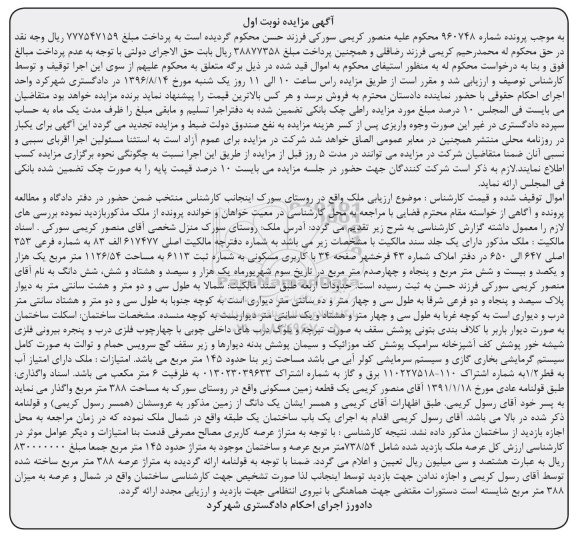 آگهی مزایده نوبت اول
به موجب پرونده شماره ۹۶۰۷۴۸ محکوم علیه منصور کریمی سورکی فرزند حسن محکوم گردیده است به پرداخت مبلغ ۷۷۷۵۴۷۱۵۹ ریال وجه نقد
در حق محکوم له محمدرحیم کریمی فرزند رضاقلی و همچنین پرداخت مبلغ ۳۸۸۷۷۳۵۸ ریال بابت حق الاجرای دولتی با توجه به عدم پرداخت مبالغ
فوق و بنا به درخواست محکوم له به منظور استیفای محکوم به اموال قید شده در ذیل برگه متعلق به محکوم علیهم از سوی این اجرا توقیف و توسط
کارشناس توصیف و ارزیابی شد و مقرر است از طریق مزایده راس ساعت ۱۰ الی ۱۱ روز یک شنبه مورخ ۱۳۹۶/۸/۱۴ در دادگستری شهرکرد واحد
اجرای احکام حقوقی با حضور نماینده دادستان محترم به فروش برسد و هر کس بالاترین قیمت را پیشنهاد نماید برنده مزایده خواهد بود متقاضیان
می بایست فی المجلس ۱۰ درصد مبلغ مورد مزایده راطی چک بانکی تضمین شده به دفتراجرا تسلیم و مابقی مبلغ را ظرف مدت یک ماه به حساب
سپرده دادگستری در غیر این صورت وجوه واریزی پس از کسر هزینه مزایده به نفع صندوق دولت ضبط و مزایده تجدید می گردد این آگهی برای یکبار
در روزنامه محلی منتشر همچنین در معابر عمومی الصاق خواهد شد شرکت در مزایده برای عموم آزاد است به استثنا مسئولین اجرا اقربای سببی و
نسبی آنان ضمنا متقاضیان شرکت در مزایده می توانند در مدت ۵ روز قبل از مزایده از طریق این اجرا نسبت به چگونگی نحوه برگزاری مزایده کسب
اطلاع نمایند.لازم به ذکر است شرکت کنندگان جهت حضور در جلسه مزایده می بایست ۱۰ درصد قیمت پایه را به صورت چک تضمین شده بانکی
فی المجلس ارائه نماید.
اموال توقیف شده و قیمت کارشناس : موضوع ارزیابی ملک واقع در روستای سورک اینجانب کارشناس منتخب ضمن حضور در دفتر دادگاه و مطالعه
پرونده و آگاهی از خواسته مقام محترم قضایی با مراجعه به محل کارشناسی در معیت خواهان و خوانده پرونده از ملک مذکوربازدید نموده بررسی های
لازم را معمول داشته گزارش کارشناسی به شرح زیر تقدیم می گردد: آدرس ملک: روستای سورک منزل شخصی آقای منصور کریمی سورکی . اسناد
مالکیت : ملک مذکور دارای یک جلد سند مالکیت با مشخصات زیر می باشد به شماره دفترچه مالکیت اصلی ۶۱۷۴۷۷ الف ۸۳ به شماره فرعی ۳۵۳
اصلی ۶۴۷ الی ۶۵۰ در دفتر املاک شماره ۴۳ فرخشهر صفحه ۳۴ با کاربری مسکونی به شماره ثبت ۶۱۱۳ به مساحت ۱۱۲۶/۵۴ متر مربع یک هزار
و یکصد و بیست و شش متر مربع و پنجاه و چهارصدم متر مربع در تاریخ سوم شهریورماه یک هزار و سیصد و هشتاد و شش، شش دانگ به نام آقای
منصور کریمی سورکی فرزند حسن به ثبت رسیده است. حدودات اربعه طبق سند مالکیت: شمالا به طول سی و دو متر و هشت سانتی متر به دیوار
پلاک سیصد و پنجاه و دو فرعی شرقا به طول سی و چهار متر و ده سانتی متر دیواری است به کوچه جنوبا به طول سی و دو متر و هشتاد سانتی متر
درب و دیواری است به کوچه غربا به طول سی و چهار متر و هشتاد و یک سانتی متر دیواریست به کوچه منسده. مشخصات ساختمان: اسکلت ساختمان
به صورت دیوار باربر با کلاف بندی بتونی پوشش سقف به صورت تیرچه و بلوک درب های داخلی چوبی با چهارچوب فلزی درب و پنجره بیرونی فلزی
شیشه خور پوشش کف آشپزخانه سرامیک پوشش کف موزائیک و سیمان پوشش بدنه دیوارها و زیر سقف گچ سرویس حمام و توالت به صورت کامل
سیستم گرمایشی بخاری گازی و سیستم سرمایشی کولر آبی می باشد مساحت زیر بنا حدود ۱۴۵ متر مربع می باشد. امتیازات : ملک دارای امتیاز آب
به قطر۱/۲به شماره اشتراک ۱۱۰-۲۲۷۵۱۸-۱۱۰ برق و گاز به شماره اشتراک ۰۱۳۰۲۳۰۳۹۶۳۳ به ظرفیت ۶ متر مکعب می باشد. اسناد واگذاری:
طبق قولنامه عادی مورخ ۱۳۹۱/۱/۱۸ آقای منصور کریمی یک قطعه زمین مسکونی واقع در روستای سورک به مساحت ۳۸۸ متر مربع واگذار می نماید
به پسر خود آقای رسول کریمی. طبق اظهارات آقای کریمی و همسر ایشان یک دانگ از زمین مذکور به عروسشان (همسر رسول کریمی) و قولنامه
ذکر شده در بالا می باشد. آقای رسول کریمی اقدام به اجرای یک باب ساختمان یک طبقه واقع در شمال ملک نموده که در زمان مراجعه به محل
اجازه بازدید از ساختمان مذکور داده نشد. نتیجه کارشناسی : با توجه به متراژ عرصه کاربری مصالح مصرفی قدمت بنا امتیازات و دیگر عوامل موثر در
کارشناسی ارزش کل عرصه ملک بازدید شده شامل ۷۳۸/۵۴متر مربع عرصه و ساختمان موجود به متراژ حدود ۱۴۵ متر مربع جمعا مبلغ ۸۳۰۰۰۰۰۰۰
ریال به عبارت هشتصد و سی میلیون ریال تعیین و اعلام می گردد. ضمنا با توجه به قولنامه ارائه گردیده به متراژ عرصه ۳۸۸ متر مربع ساخته شده
توسط آقای رسول کریمی و اجازه ندادن جهت بازدید توسط اینجانب لذا صورت تشخیص جهت کارشناسی ساختمان واقع در شمال و عرصه به میزان
۳۸۸ متر مربع شایسته است دستورات مقتضی جهت هماهنگی با نیروی انتظامی جهت بازدید و ارزیابی مجدد ارائه گردد.
دادورز اجرای احکام دادگستری شهرکرد